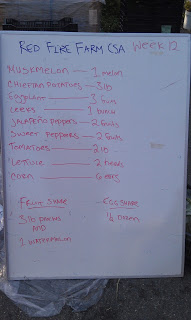 RED FIRE FARM CSA WEEK 12
MUSKMELON — 1 melon
CHIEFTAN POTATOES — 3 lb
EGGPLANT — 3 fruits
LEEKS — 1 bunch
JALAPEÑO PEPPERS — 2 fruits
SWEET PEPPERS — 2 fruits
TOMATOES — 2 lb
LETTUCE — 2 heads
CORN — 6 ears
FRUIT SHARE
3 lb
AND
1 WATERMELON
EGG SHARE
1/2 DOZEN